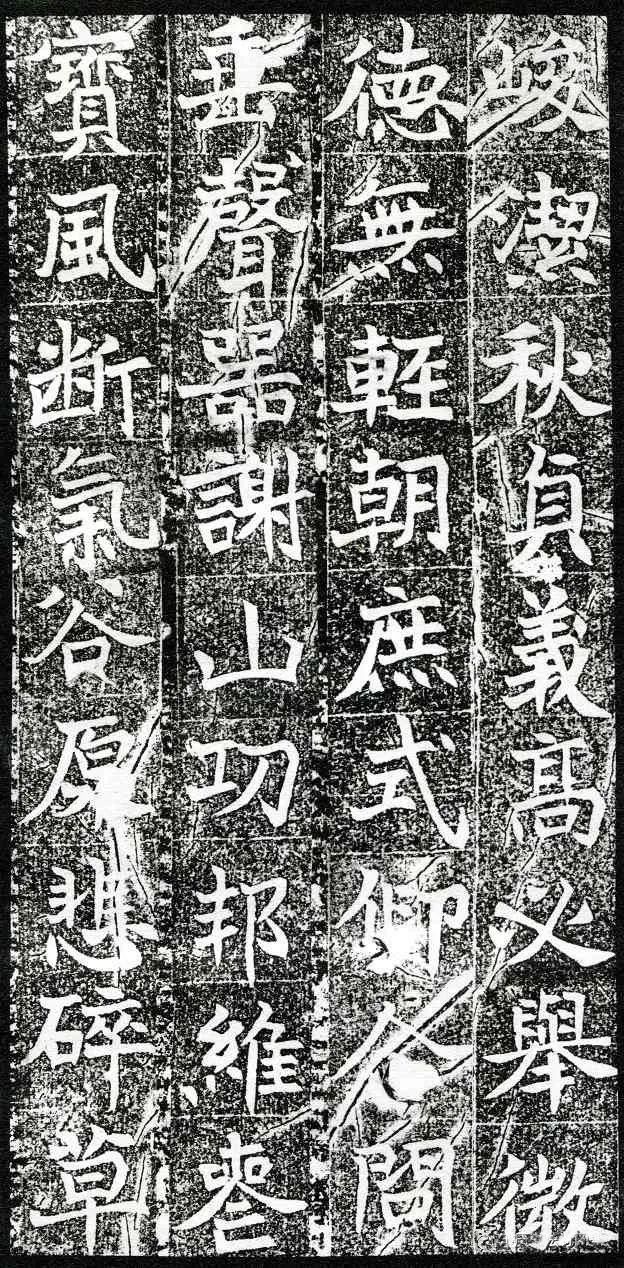 峻潔秋貞義高必舉微
德無輕朝庶式仰閭
垂聲器謝山功邦維喪
寶風断氣谷原悲碎草